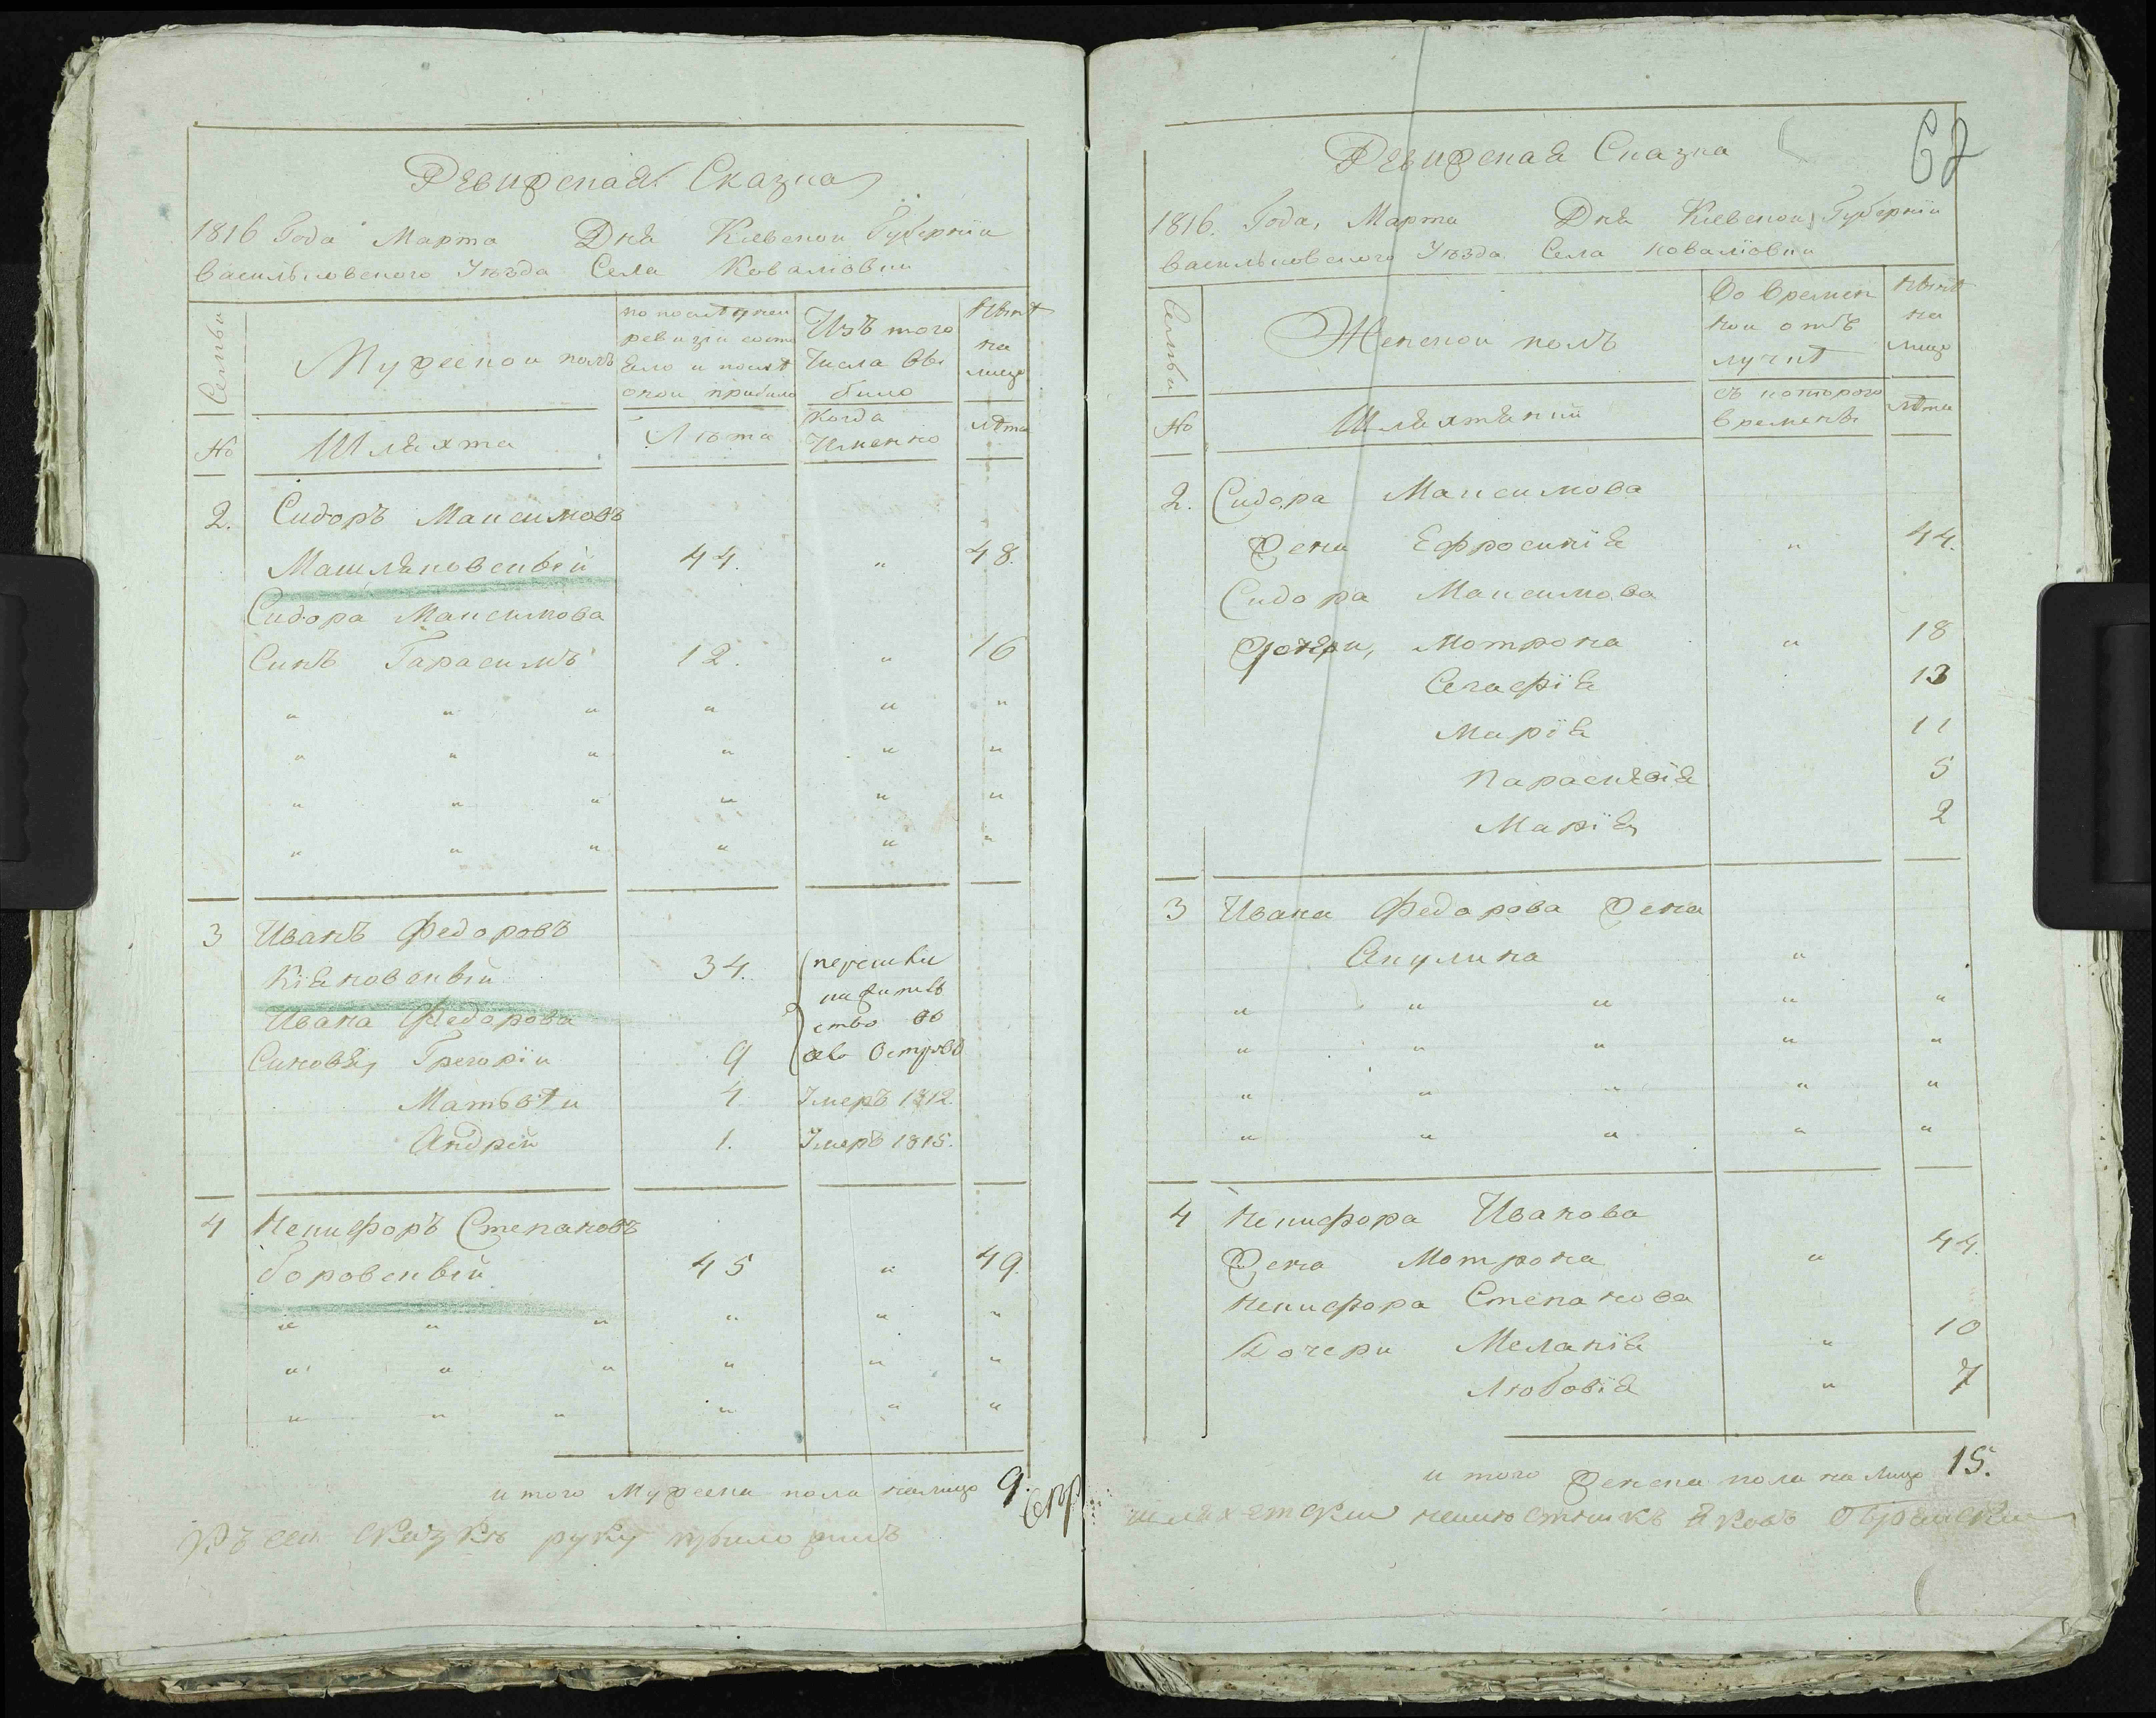 Ревижская Сказка
1816 Года Марта Дня Киевскои Губернїи
Васильковского Уѣзда Села Ковалювки
Семьи
Мужескои полъ
по последней
ревизїи состо
яло и послѣ
оной прибыло
Изъ того
Числа вы
было
Нынѣ
на
лицо
№
Шляхта
Лѣта
Когда
Именно
Лѣта
2. Сидоръ Максимовъ
Машляковскый 44. " 48.
Сидора Максимова
Синъ Гарасимъ 12. " 16
" " " " " "
" " " " " "
" " " " " "
" " " " " "
3 Иванъ Федоровъ
Кіяновскый 34.
Ивана Федорова
Синовя, Грегорїи 9
Матьвѣи 4 Умеръ 1812.
Андрей 1. Умеръ 1815.
4 Никифоръ Степановъ
боровскый 45 " 49.
" " " " " "
" " " " " "
" " " " " "
итого Мужеска пола налицо 9.
Къ сеи сказкѣ руку приложилъ
62
Ревижская Сказка
1816. Года, Марта Дня Киевскои Губернїи
Васильковского Уѣзда Села Ковалювки
Семьи
Женскои полъ
Во времен
нои отъ
лучкѣ
Нынѣ
на
лицо
№
Шляхтянки
съ которого
времены
Лѣта
2. Сидора Максимова
Жена Ефросинїя " 44.
Сидора Максимова
Дочери, Мотрона " 18
Агафїя 13
Марїя 11
Параскевїя 5
Марїя 2
3 Ивана Федорова Жена
Акулина "
" " " " "
" " " " "
" " " "
" " " " "
4 Никифора Иванова
Жена Мотрона " 44.
Никифора Степанова
Дочери Меланїя " 10
Любовїя " 7
итого Женска пола на лицо 15.
шляхетски Яковъ